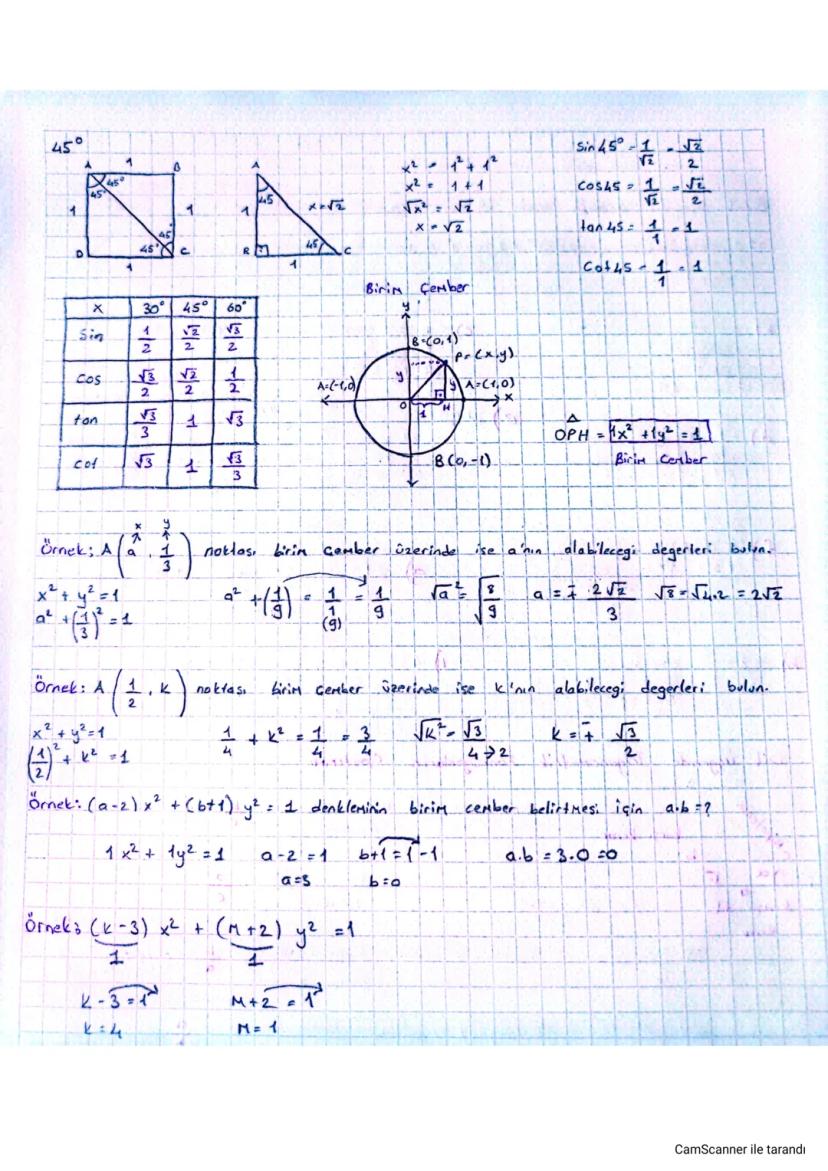 45°
A 1 B
45°
45°
1 1
45
45°
D C
1
A
45
1 x=√2
45
B C
1
x² = 1² + 1²
x² = 1 + 1
√x² = √2
x = √2
Sin 45° = 1/√2 = √2/2
cos 45 = 1/√2 = √2/2
tan 45 = 1/1 = 1
Cot 45 = 1/1 = 1
x 30° 45° 60°
Sin 1/2 √2/2 √3/2
cos √3/2 √2/2 1/2
tan √3/3 1 √3
cot √3 1 √3/3
Birim Çember
y
B=(0,1)
P=(x,y)
A=(-1,0) y y A=(1,0)
O H x
1
B(0,-1)
OPH = 1x² + 1y² = 1
Birim Çember
x y
Örnek; A (a, 1/3) noktası birim çember üzerinde ise a'nın alabileceği değerleri bulun.
x² + y² = 1
a² + (1/3)² = 1
a² + (1/9) = 1/1 = 1/9
(9)
√a² = √8/9
a = ∓ 2√2/3
√8 = √4.2 = 2√2
Örnek: A (1/2, K) noktası birim çember üzerinde ise K'nın alabileceği değerleri bulun.
x² + y² = 1
(1/2)² + K² = 1
1/4 + K² = 1/4 = 3/4
√K² = √3/4→2
K = ∓ √3/2
Örnek: (a-2) x² + (b+1) y² = 1 denkleminin birim çember belirtmesi için a.b = ?
1x² + 1y² = 1 a-2 = 1 b+1 = 1-1 a.b = 3.0 = 0
a=3 b=0
Örnek: (K-3) x² + (M+2) y² = 1
1 1
K-3 = 1 M+2 = 1
K=4 M=1
CamScanner ile tarandı